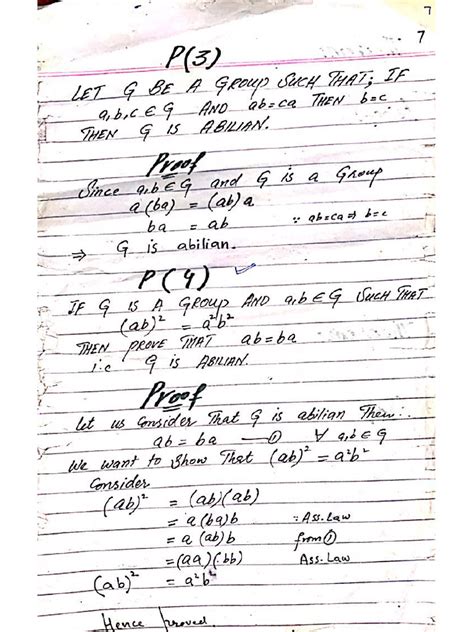 7
7
P(3)
LET G BE A GROUP SUCH THAT; IF
a,b,c ∈ G AND ab=ca THEN b=c
THEN G IS ABILIAN.
Proof
Since a,b ∈ G and G is a Group
a(ba) = (ab)a
ba = ab ∵ ab=ca ⇒ b=c
⇒ G is abilian.
P(4)
IF G IS A GROUP AND a,b ∈ G SUCH THAT
(ab)² = a²b²
THEN PROVE THAT ab=ba
i.e G IS ABILIAN.
Proof
let us Consider That G is abilian Then:.
ab = ba —① ∀ a,b ∈ G
We want to Show That (ab)² = a²b²
Consider
(ab)² = (ab)(ab)
= a(ba)b ∵ Ass. Law
= a(ab)b from ①
= (aa)(bb) Ass. Law
(ab)² = a²b²
Hence proved.